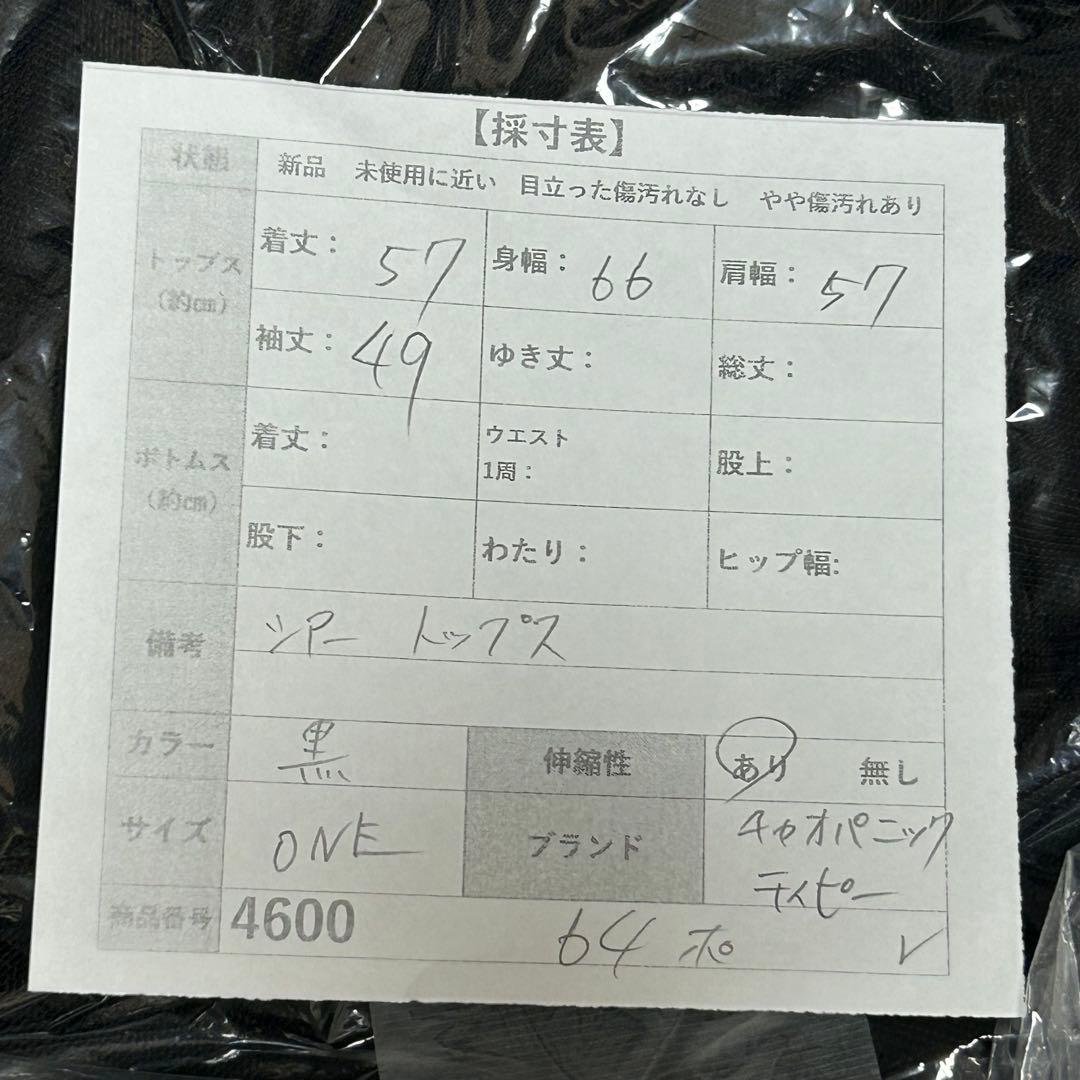 【採寸表】
状態 新品 未使用に近い 目立った傷汚れなし やや傷汚れあり
トップス (約cm) 着丈: 57 身幅: 66 肩幅: 57
袖丈: 49 ゆき丈: 総丈:
ボトムス (約cm) 着丈: ウエスト 1周: 股上:
股下: わたり: ヒップ幅:
備考 シアー トップス
カラー 黒 伸縮性 あり 無し
サイズ ONE ブランド チャオパニック
ティピー
商品番号 4600 64 ポ ✓